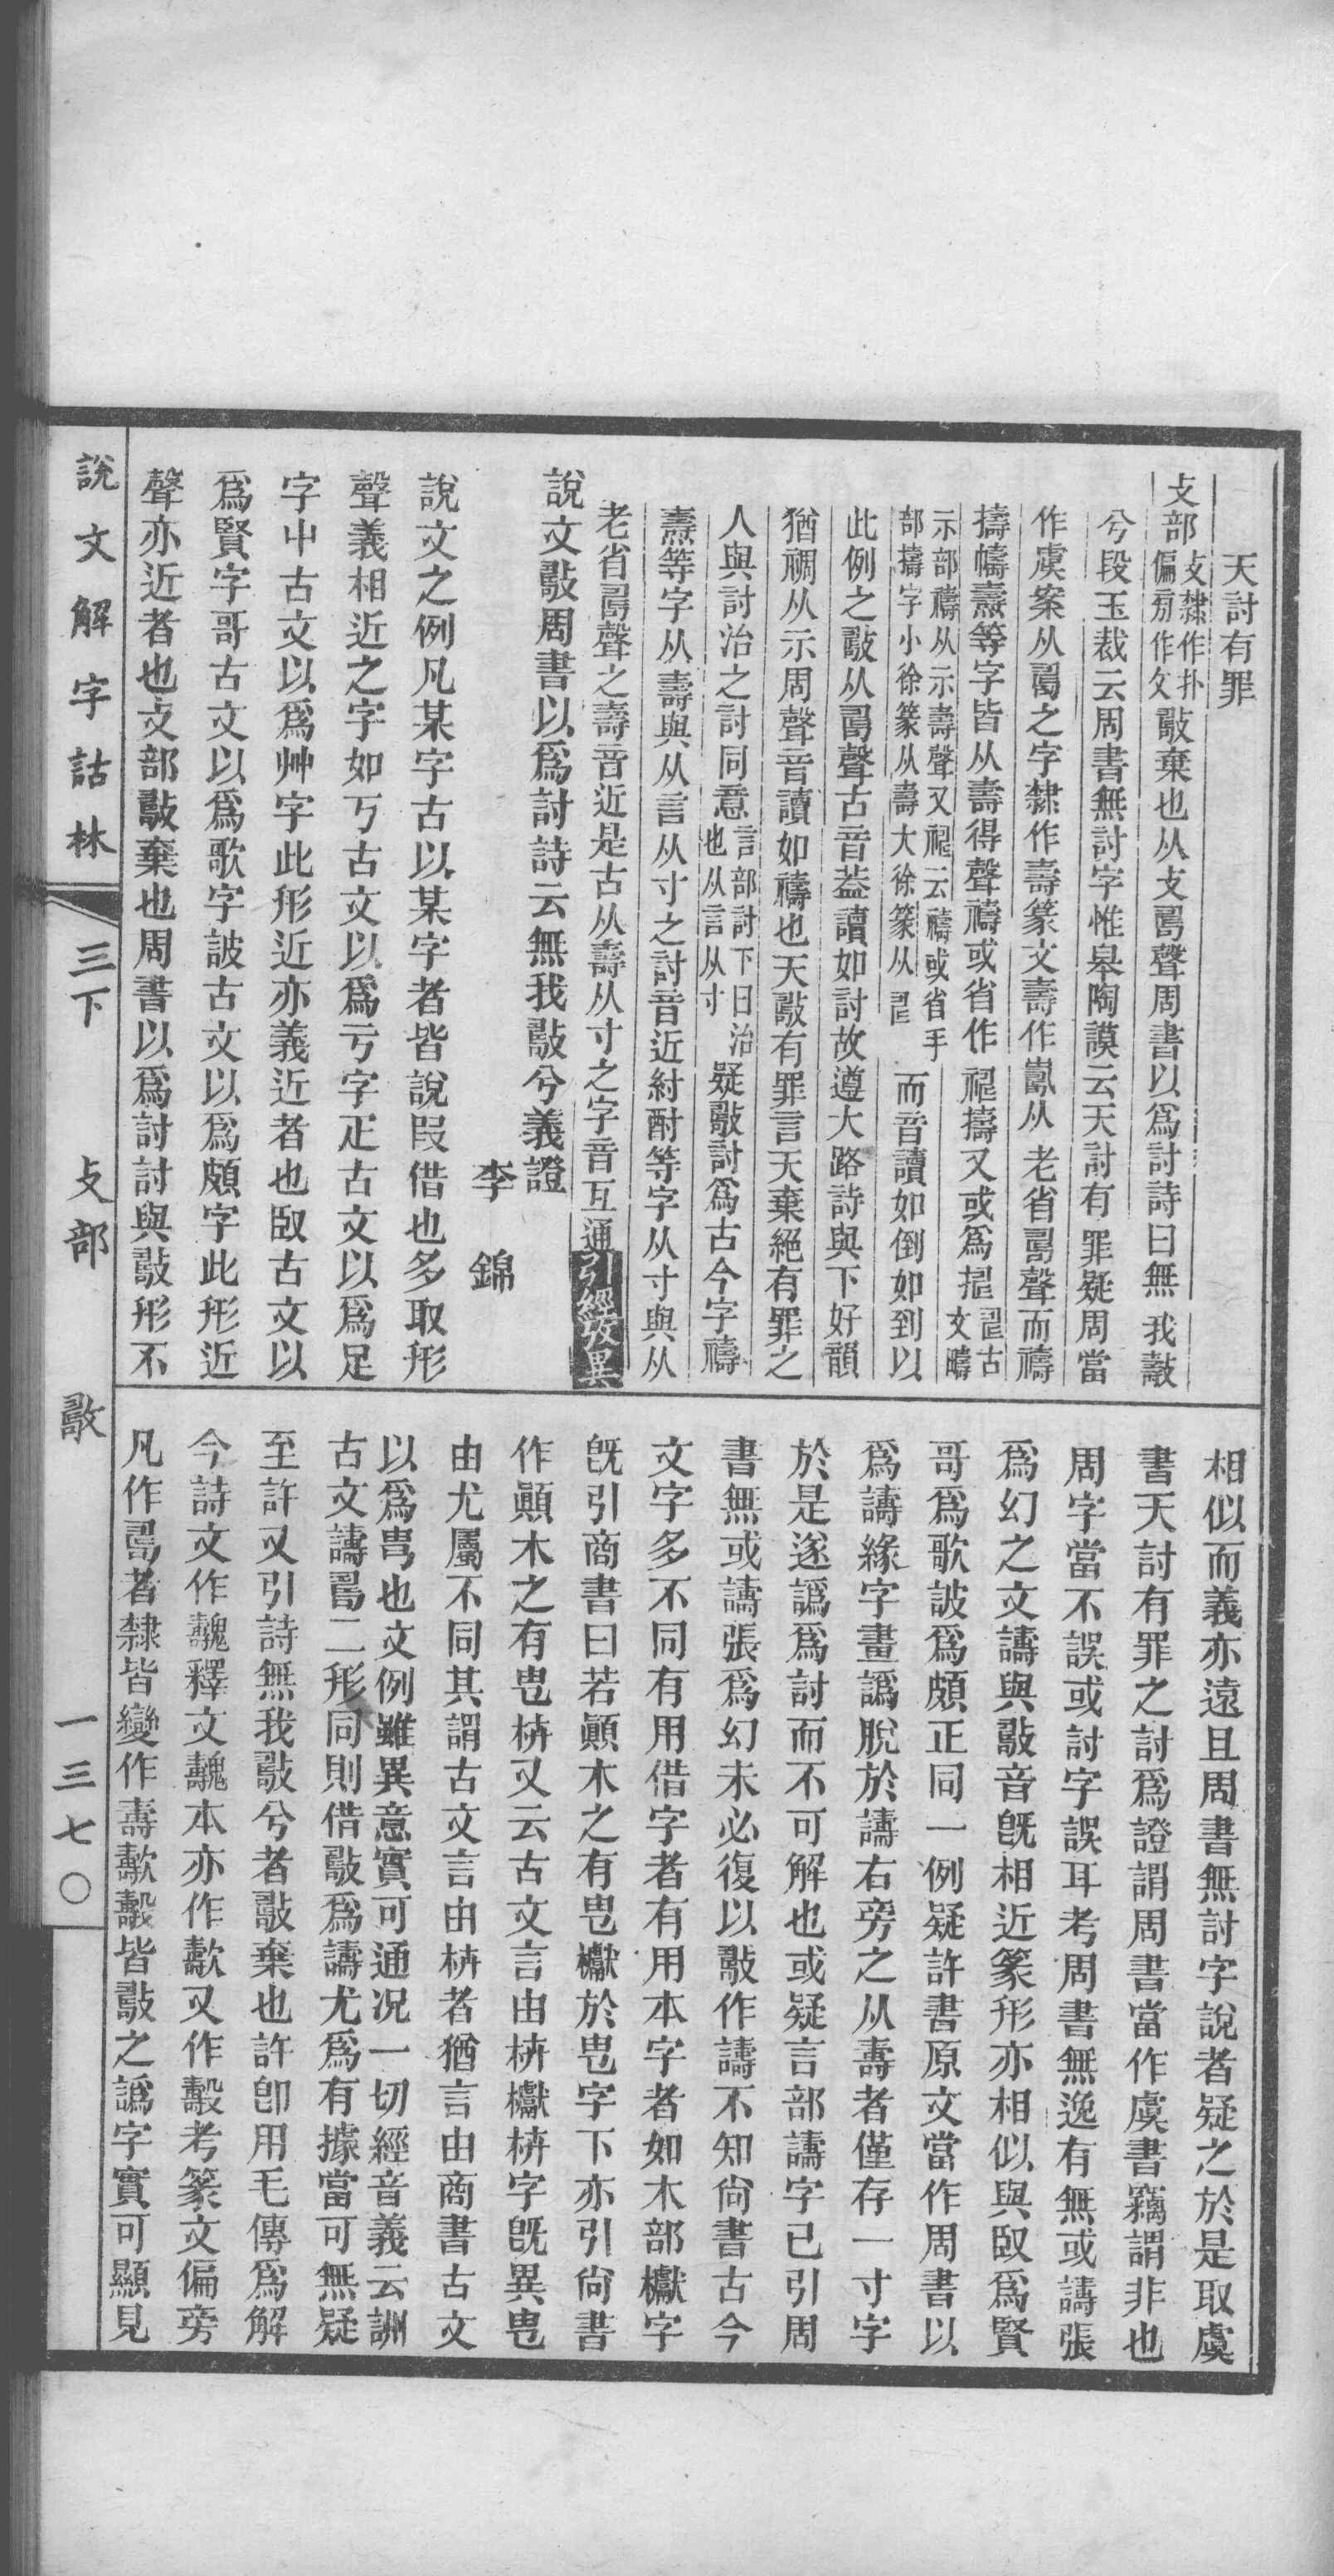 天討有罪
攴部攴隸作扑偏旁作攵敽棄也从攴𠷎聲周書以爲討詩曰無我敽
兮段玉裁云周書無討字惟皋陶謨云天討有罪疑周當
作虞案从𠷎之字隸作壽篆文壽作𠷎从老省𠷎聲而禱
擣幬燾等字皆从壽得聲禱或省作
示部禱从示壽聲又云禱或省手
部擣字小徐篆从壽大徐篆从
而音讀如倒如到以
此例之敽从𠷎聲古音葢讀如討故遵大路詩與下好韻
猶禂从示周聲音讀如禱也天敽有罪言天棄絕有罪之
人與討治之討同意言部討下曰治也从言从寸疑敽討爲古今字禱
燾等字从壽與从言从寸之討音近紂酎等字从寸與从
老省𠷎聲之壽音近是古从壽从寸之字音互通引經攷異
說文敽周書以爲討詩云無我敽兮義證
李錦
說文之例凡某字古以某字者皆說叚借也多取形
聲義相近之字如丂古文以爲亏字疋古文以爲足
字屮古文以爲艸字此形近亦義近者也臤古文以
爲賢字哥古文以爲歌字詖古文以爲頗字此形近
聲亦近者也攴部敽棄也周書以爲討討與敽形不
相似而義亦遠且周書無討字說者疑之於是取虞
書天討有罪之討爲證謂周書當作虞書竊謂非也
周字當不誤或討字誤耳考周書無逸有無或譸張
爲幻之文譸與敽音旣相近篆形亦相似與臤爲賢
哥爲歌詖爲頗正同一例疑許書原文當作周書以
爲譸緣字畫譌脫於譸右旁之从壽者僅存一寸字
於是遂譌爲討而不可解也或疑言部譸字已引周
書無或譸張爲幻未必復以敽作譸不知尙書古今
文字多不同有用借字者有用本字者如木部㰈字
旣引商書曰若顚木之有㽕㰈於㽕字下亦引尙書
作顚木之有㽕枿又云古文言由枿㰈枿字旣異㽕
由尤屬不同其謂古文言由枿者猶言由商書古文
以爲㽕也文例雖異意實可通況一切經音義云詶
古文譸𠷎二形同則借敽爲譸尤爲有據當可無疑
至許又引詩無我敽兮者敽棄也許卽用毛傳爲解
今詩文作魗釋文魗本亦作㱔又作𣫐考篆文偏旁
凡作𠷎者隸皆變作壽㱔𣫐皆敽之譌字實可顯見
說文解字詁林
三下
攴部
敽
一三七〇